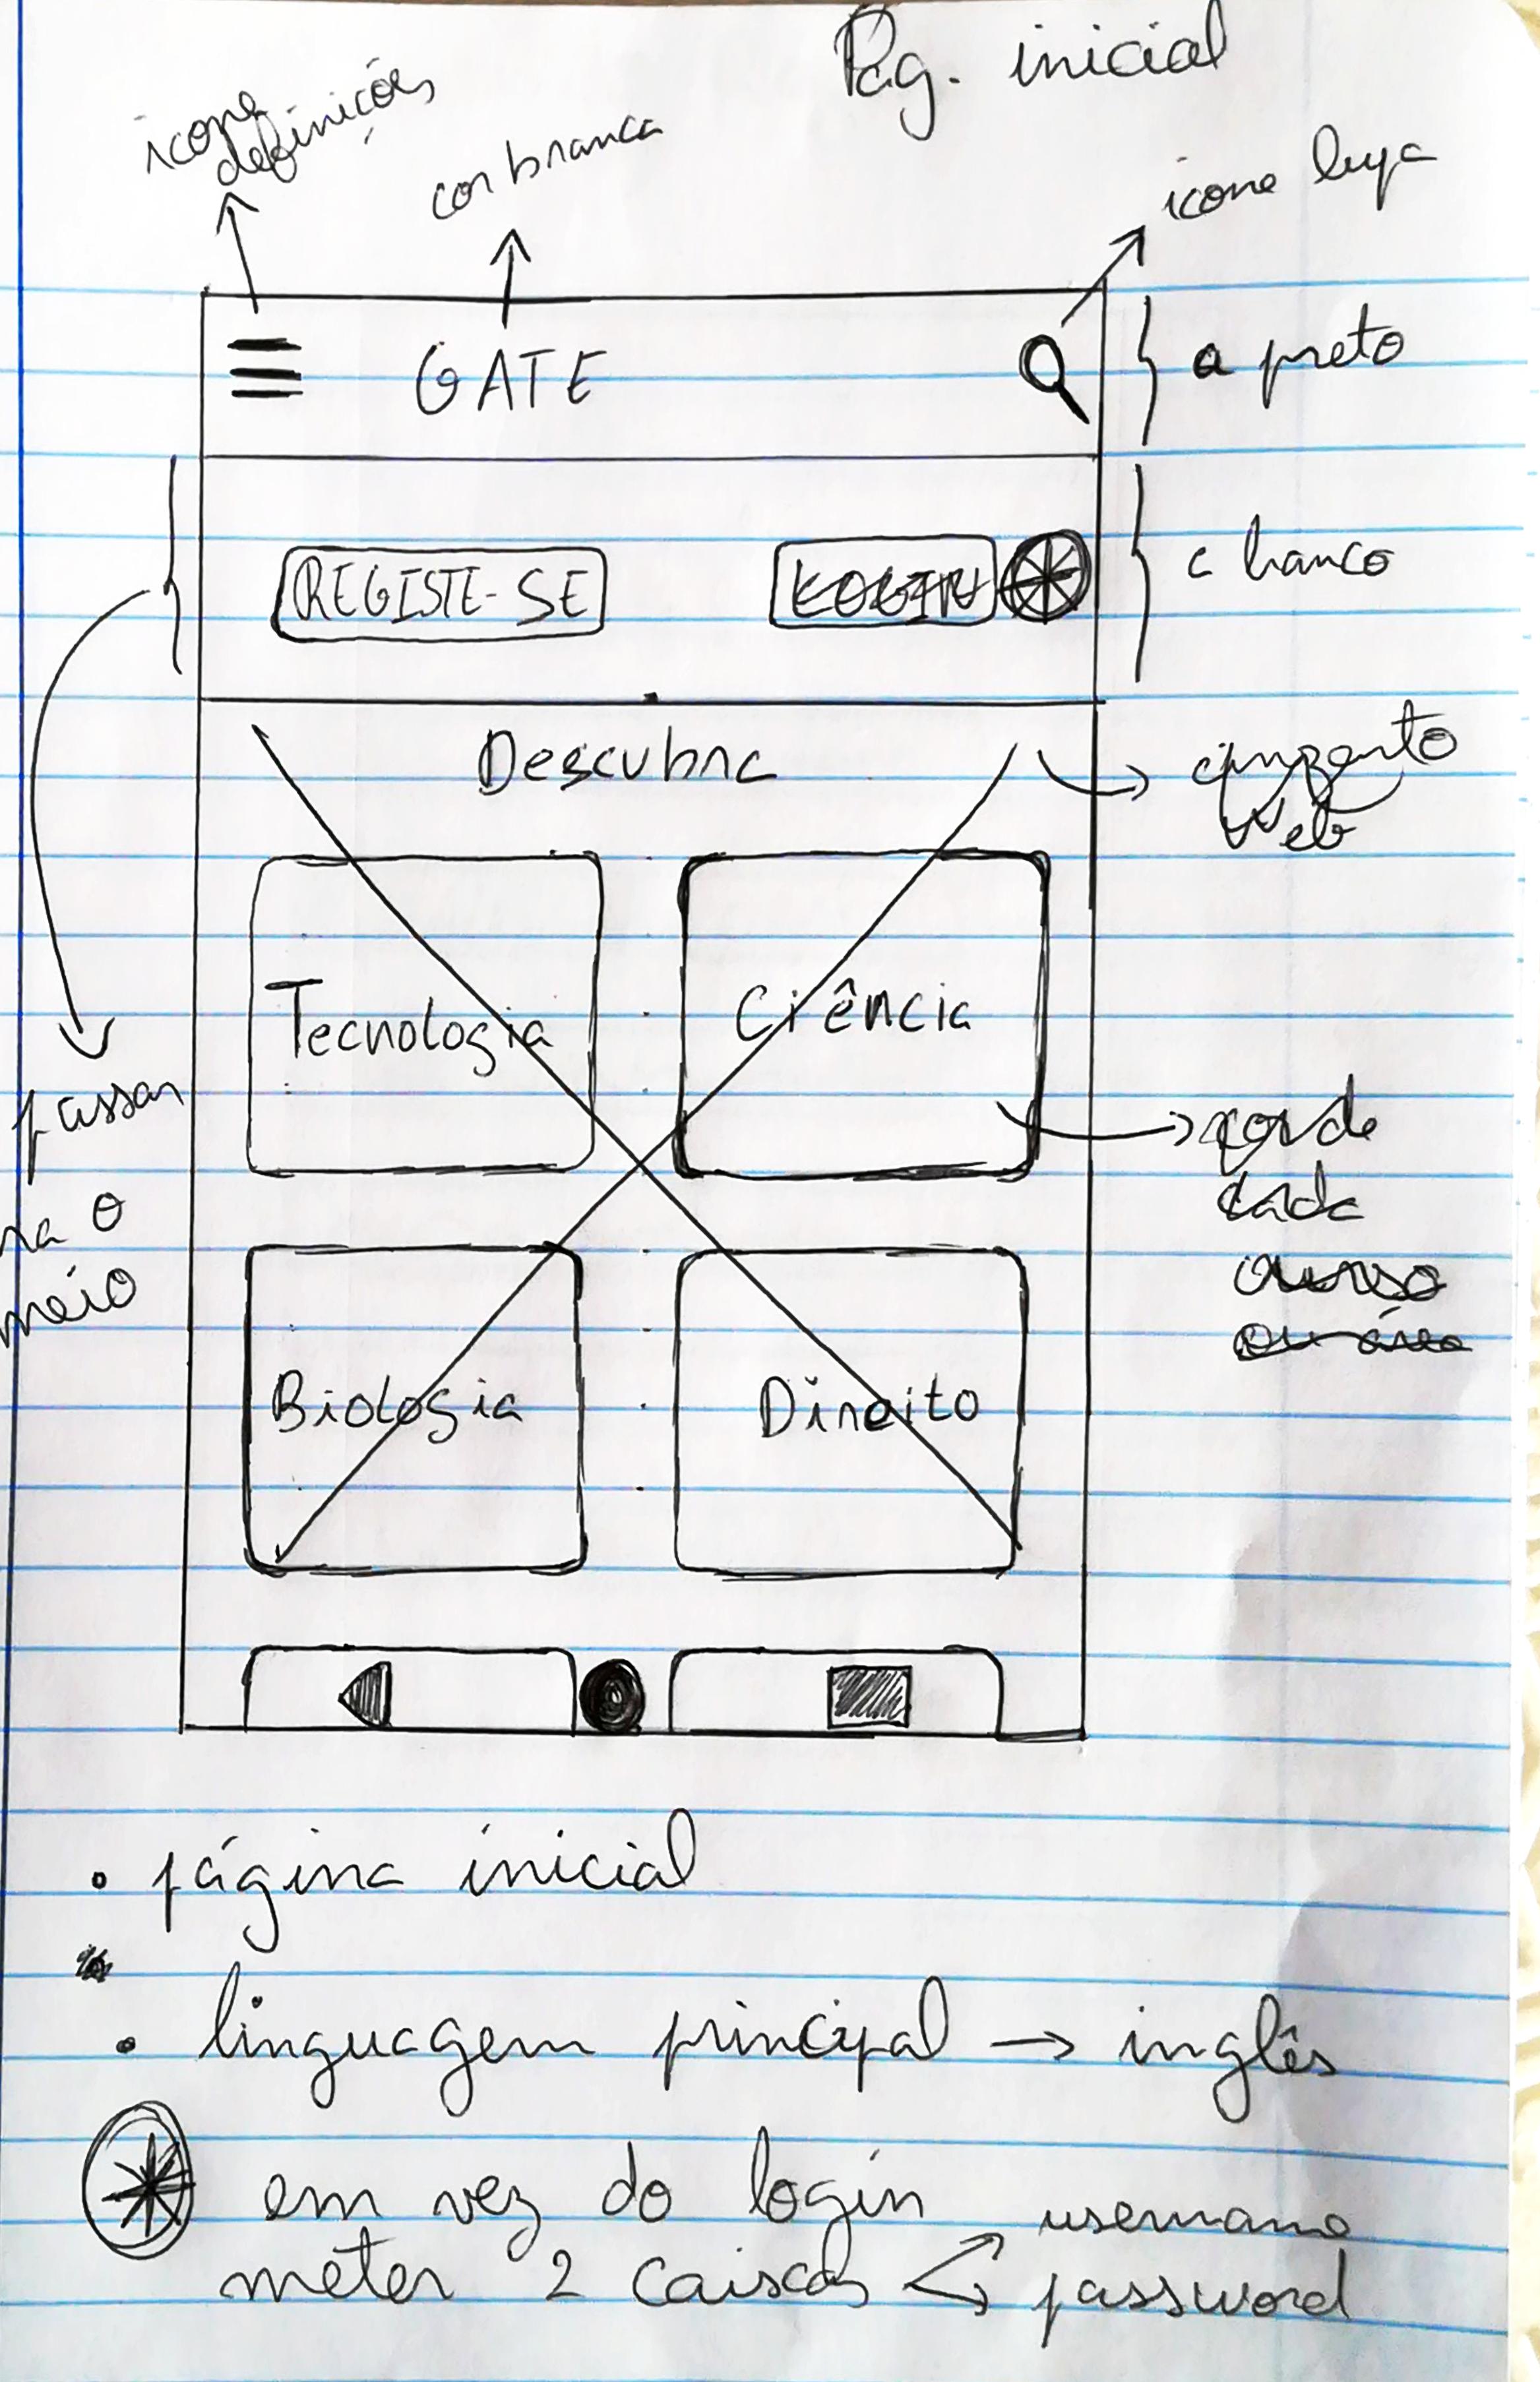 Pág. inicial
icone
definições
cor branca
icone lupa
GATE
a preto
REGISTE-SE
LOGIN
a branco
Descubra
cinzento
web
Tecnologia
Ciência
passar
pra o
meio
cor de
cada
curso
ou área
Biologia
Direito
• página inicial
• linguagem principal → inglês
em vez do login
meter 2 caixas
username
password